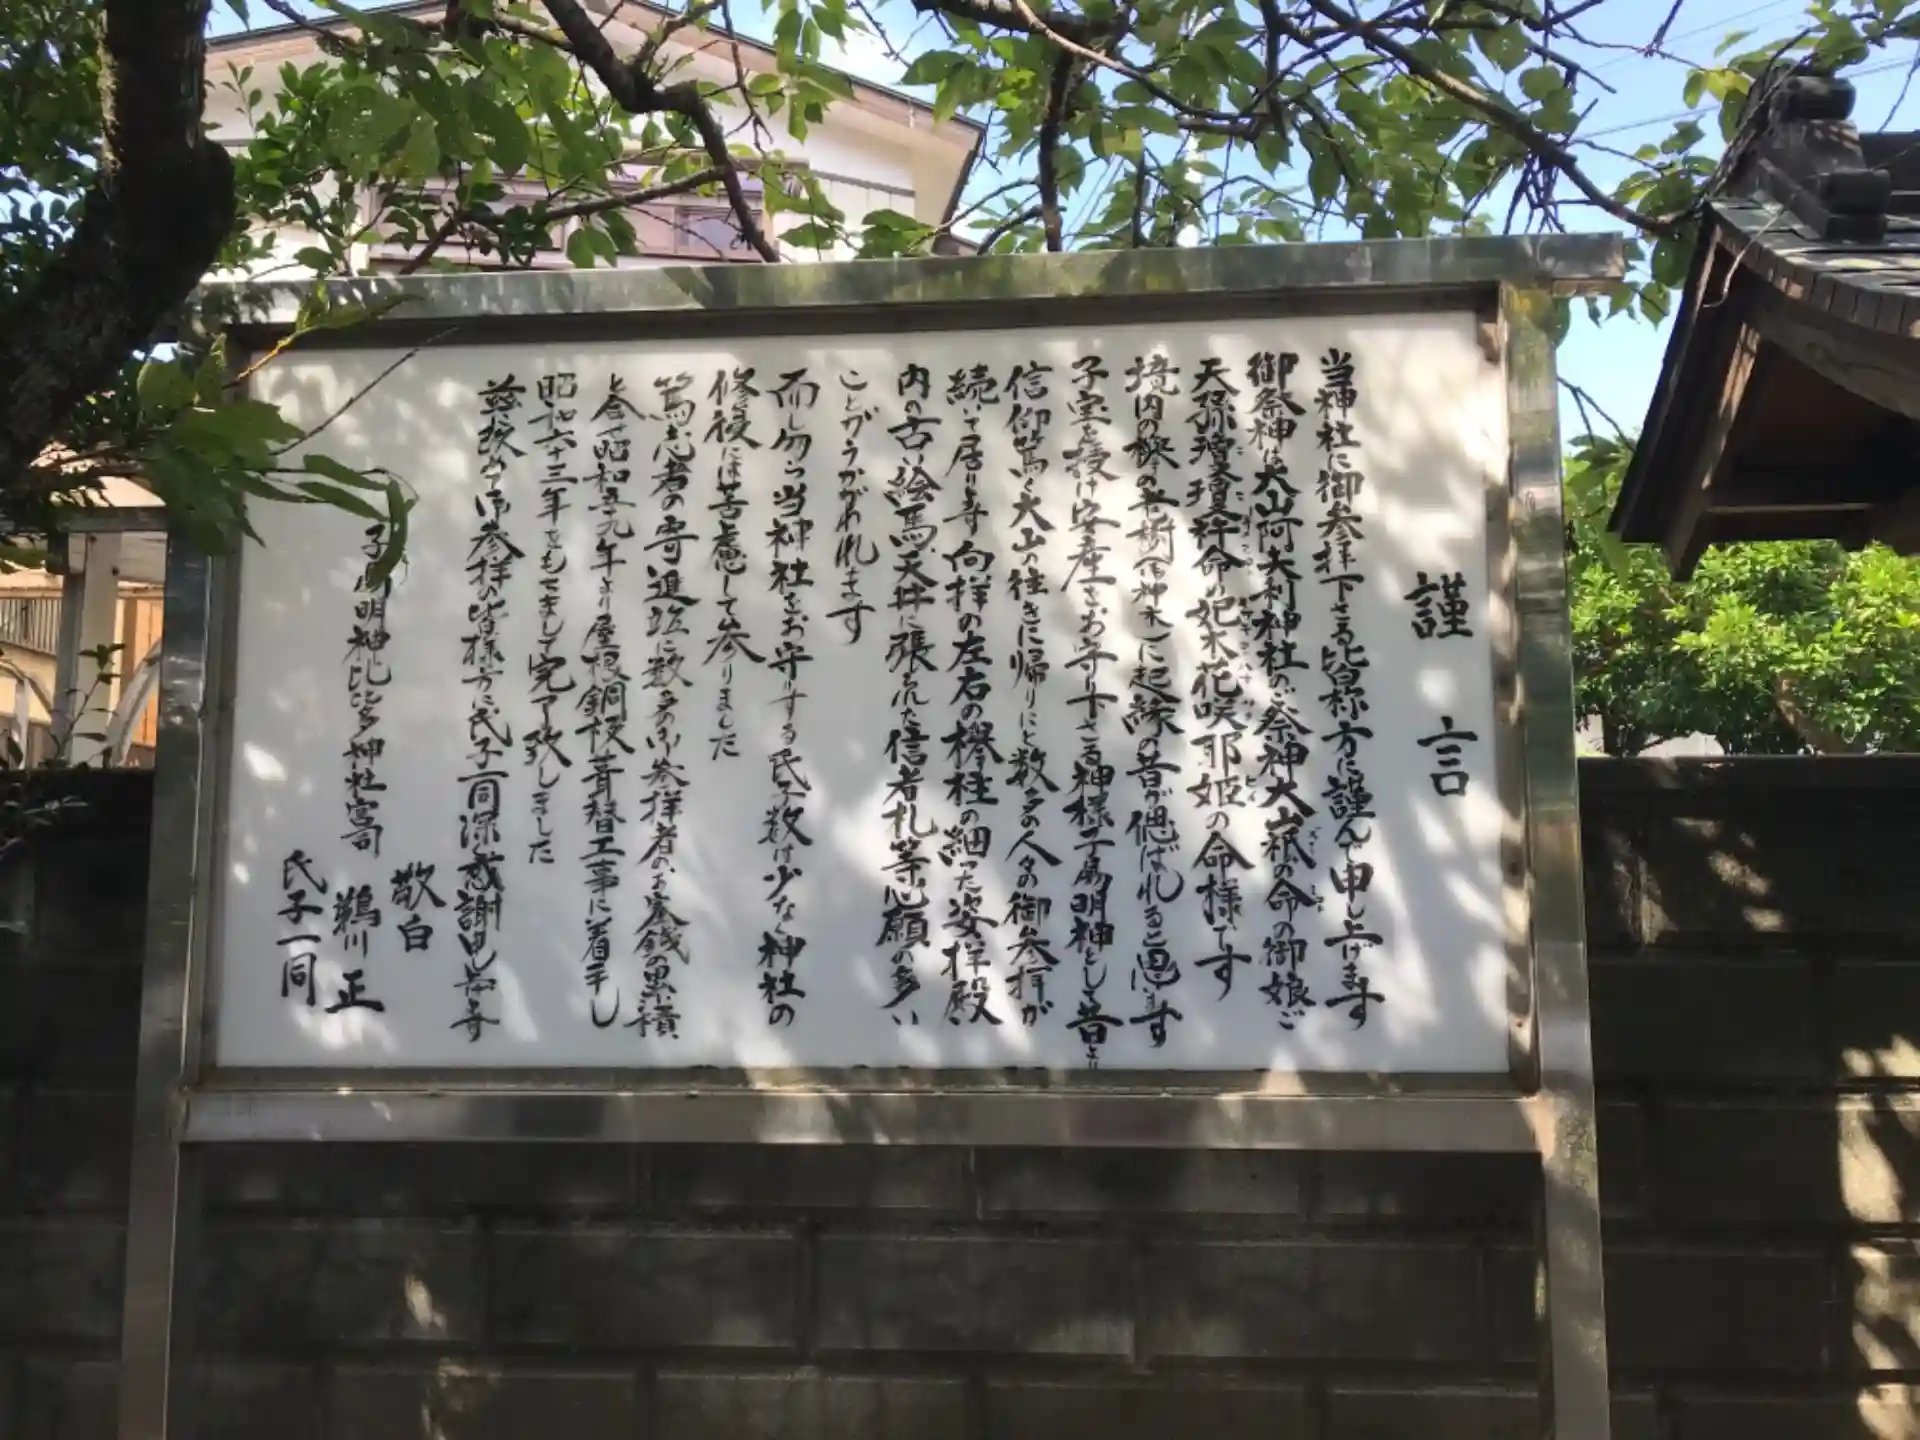 謹言
当神社に御参拝下さる皆称方に謹んで申し上げます
御祭神は大山阿夫利神社のご祭神大山祇の命の御娘ご
天孫瓊瓊杵命の妃木花咲耶姫の命様です
境内の欅の老樹(御神木)に起縁の昔が偲ばれると思います
子宝を授け安産をお守り下さる神様子易明神として昔より
信仰篤く大山の往きに帰りにと数多の人々の御参拝が
続いて居ります向拝の左右の欅柱の細った姿拝殿
内の古い絵馬天井に張られた信者札等心願の多い
ことがうかがわれます
而し乍ら当神社をお守りする氏子数は少なく神社の
修復には苦慮して参りました
篤志者の寄進並に数多の御参拝者のお賽銭の累積
と合せ昭和五十九年より屋根銅板葺替工事に着手し
昭和六十三年をもちまして完了致しました
茲に改めて御参拝の皆様方に氏子一同深く感謝申し上げます
敬白
子易明神比比多神社宮司 鵜川 正
氏子一同